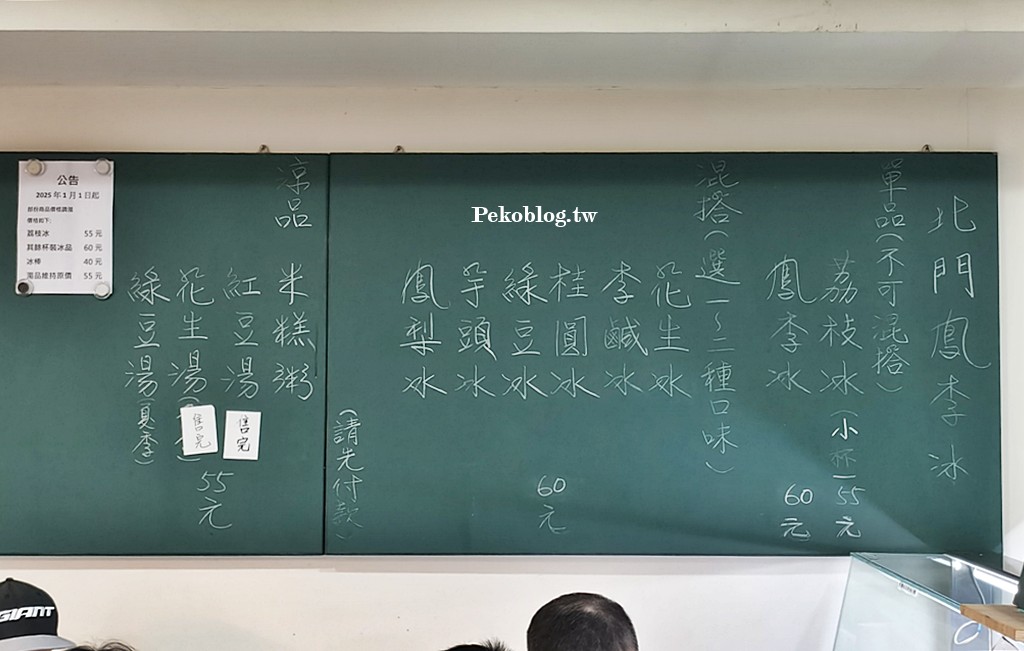 北門鳳李冰
單品(不可混搭)
荔枝冰(小杯)55元
鳳李冰 60元
混搭(選一~二種口味)
花生冰
李鹹冰
桂圓冰
綠豆冰
芋頭冰
鳳梨冰
60元
(請先付款)
涼品
米糕粥
紅豆湯
售完
花生湯
售完
綠豆湯(夏季)
55元
公告
2025年1月1日起
部份商品價格調漲
價格如下:
荔枝冰 55元
其餘杯裝冰品 60元
冰棒 40元
湯品維持原價 55元
Pekoblog.tw
GIANT